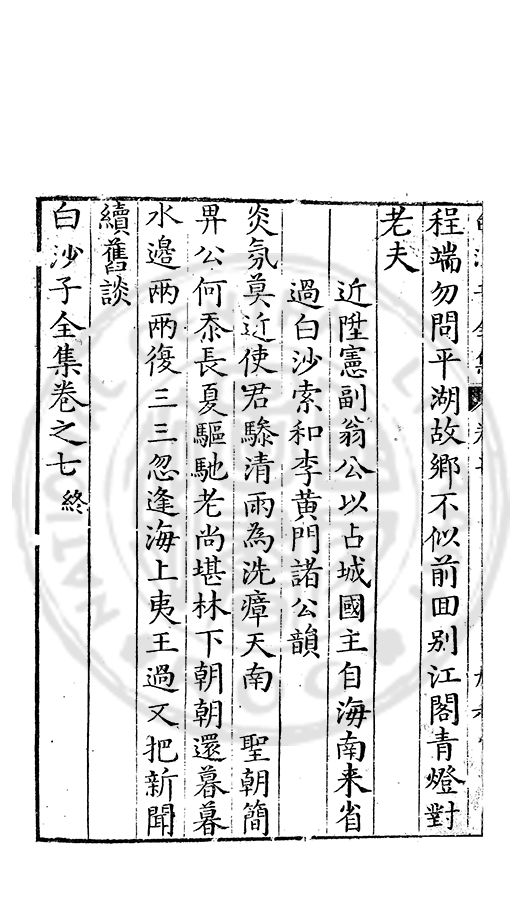 程端勿問平湖故鄉不似前回别江閣青燈對
老夫
近陞憲副翁公以占城國主自海南来省
過白沙索和李黄門諸公韻
炎氛莫近使君驂清雨為洗瘴天南　聖朝簡
畀公何忝長夏驅馳老尚堪林下朝朝還暮暮
水邊兩兩復三三忽逢海上夷王過又把新聞
續舊談
白沙子全集卷之七終